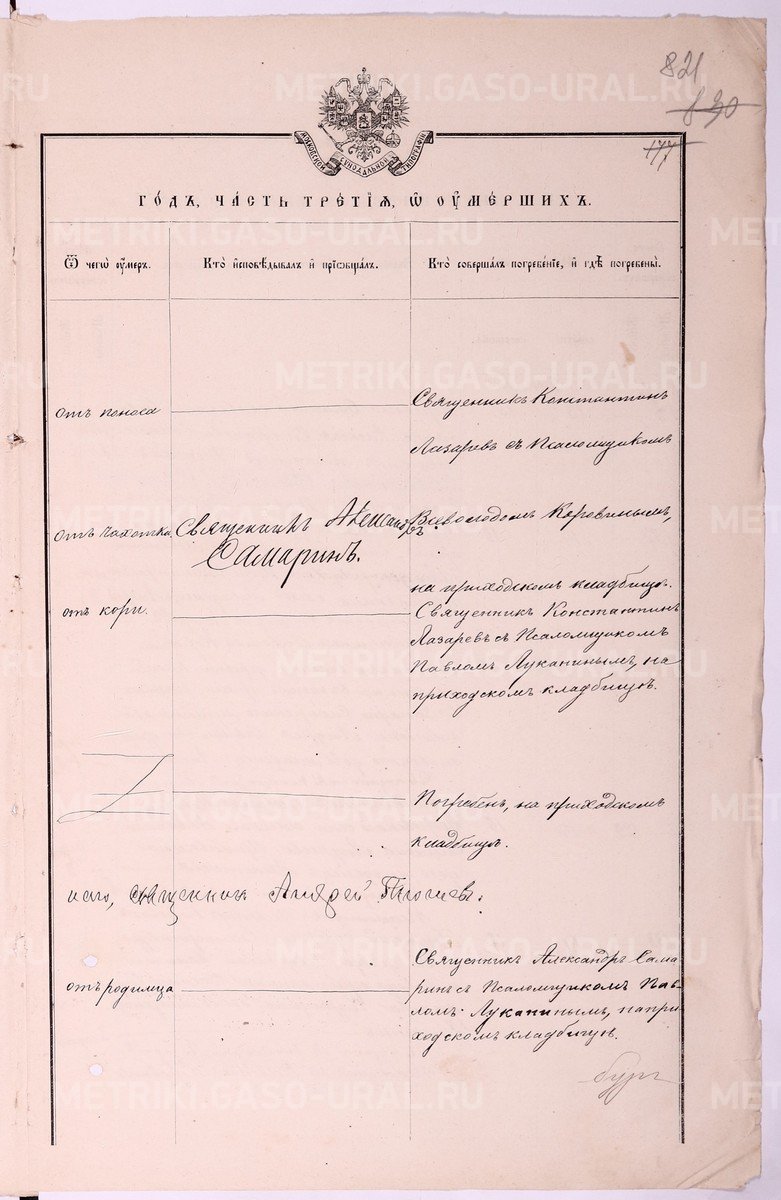 METRIKI.GASO-URAL.RU
821
830
177
МОСКОВСКОЙ СѴНОДАЛЬНОЙ ТИПОГРАФІИ
ГО́ДЪ, ЧА́СТЬ ТРЕ́ТІѦ, Ѡ҆ ОУ҆МЕ́РШИХЪ.
Ѿ чегѡ̀ оу҆́меръ.
Кто̀ и҆сповѣ́дывалъ и҆ прїѡбща́лъ.
Кто̀ соверша́лъ погребе́нїе, и҆ гдѣ̀ погребены̀.
отъ поноса
Священникъ Константинъ
Лазаревъ съ Псаломщикомъ
отъ чахотки
Священникъ Александръ
Самаринъ.
Всеволодомъ Коровинымъ,
на приходскомъ кладбищѣ.
отъ кори.
Священникъ Константинъ
Лазаревъ съ Псаломщикомъ
Павломъ Луканинымъ, на
приходскомъ кладбищѣ.
Погребенъ, на приходскомъ
кладбищѣ.
священникъ Андрей
отъ родимца
Священникъ Александръ Сама
ринъ съ Псаломщикомъ Пав-
ломъ Луканинымъ, на при
ходскомъ кладбищѣ.